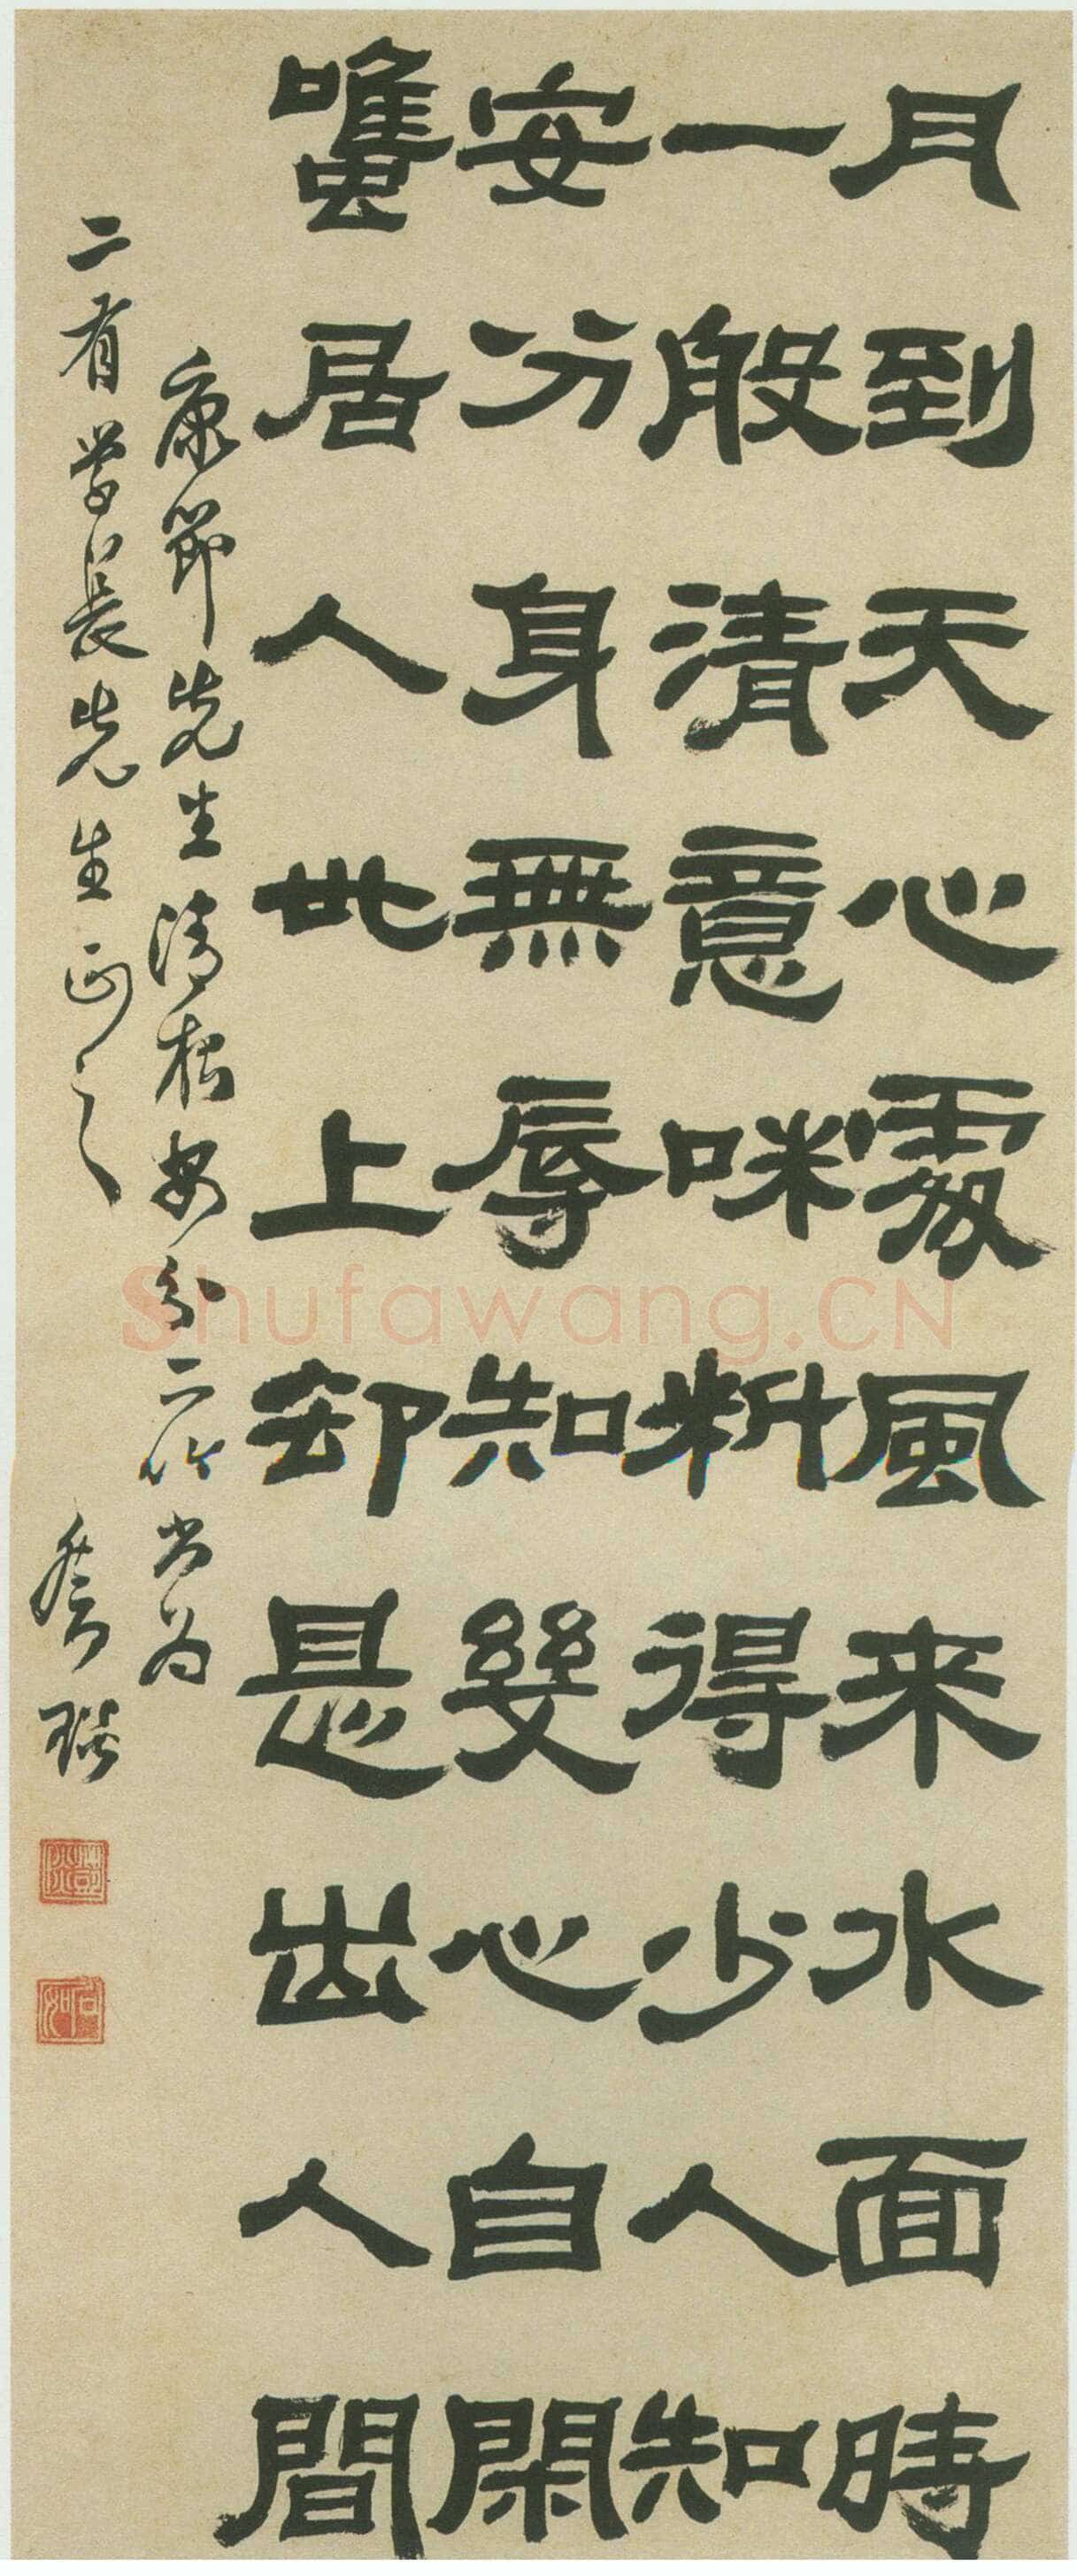 月到天心處風来水面時
一般清意味料得少人知
安分身無辱知幾心自閑
雖居人世上却是出人間
康節先生清夜安分二吟書為
二有学長先生正之
Shufawang.CN